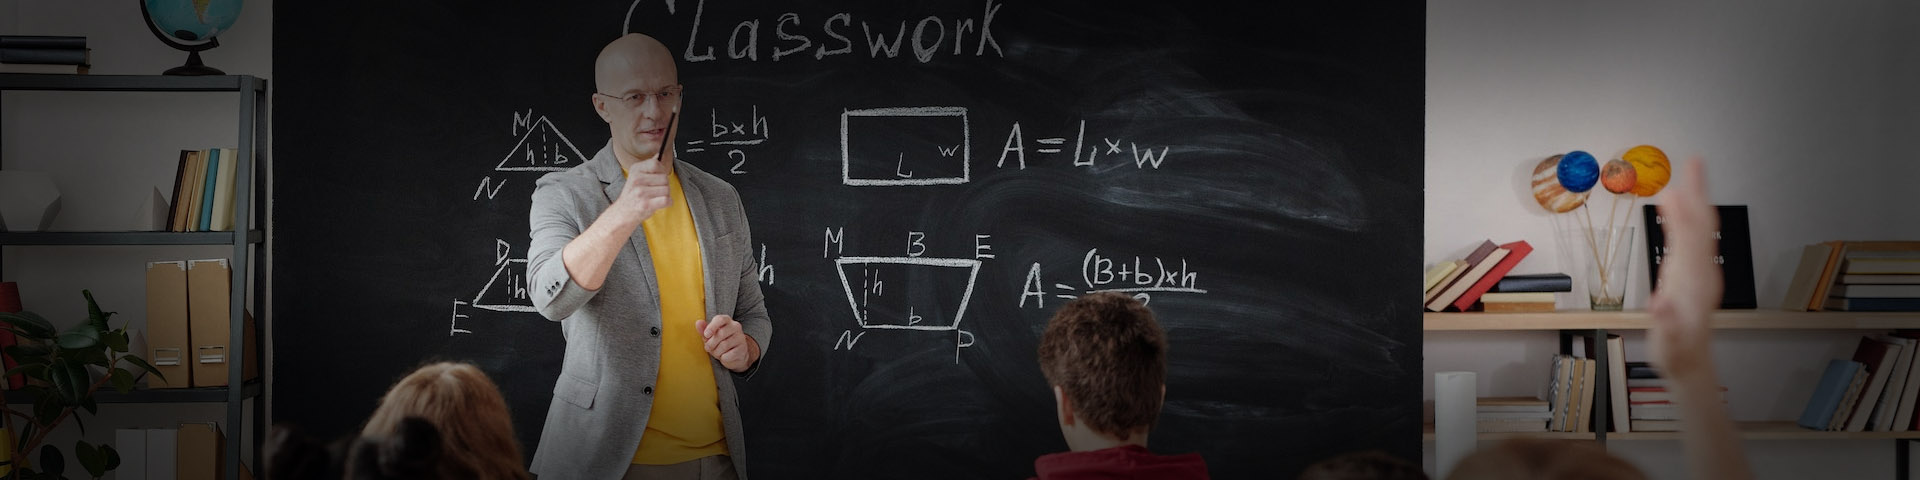 Classwork
M
= b×h
2
h b
N
L w
A = L×w
D
h
E
h
M B E
h
b
N P
A = (B+b)×h